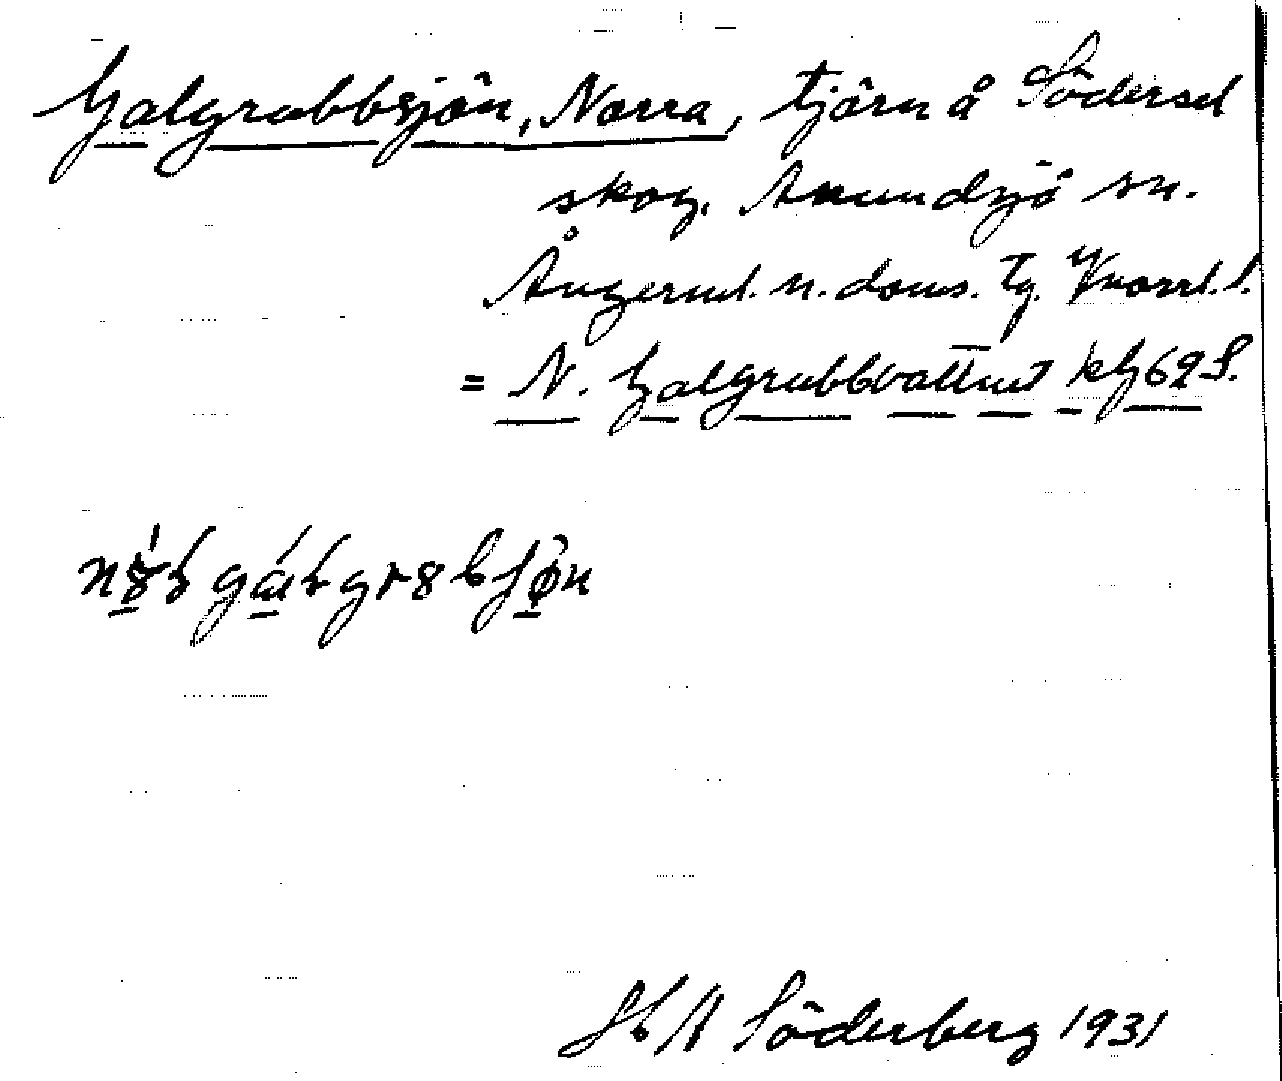 Galgrubbsjön, Norra, tjärn å Södersel
skog. Anundsjö sn.
Ångerml. n. doms. tg. Vnorrl. l.
= N. Galgrubbvattnet kg 69 S.
H A Söderberg 1931